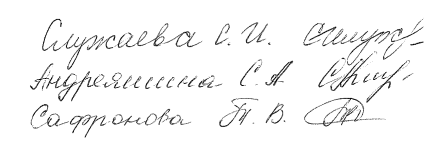 Служаева С. И. Служ
Андреяшина С. А
Сафронова Т. В.